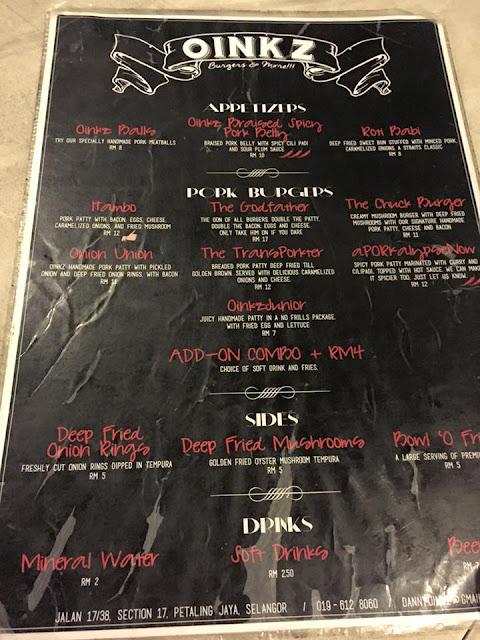 OINKZ
Burgers & More!!!
APPETIZERS
Oinkz Balls
TRY OUR SPECIALLY HANDMADE PORK MEATBALLS
RM 8
Oinkz Braised Spicy
Pork Belly
BRAISED PORK BELLY WITH SPICY CILI PADI
AND SOUR PLUM SAUCE
RM 10
Roti Babi
DEEP FRIED SWEET BUN STUFFED WITH MINCED PORK,
CARAMELIZED ONIONS. A STRAITS CLASSIC
RM 8
PORK BURGERS
Hambo
PORK PATTY WITH BACON, EGGS, CHEESE,
CARAMELIZED ONIONS, AND FRIED MUSHROOM
RM 12
The Godfather
THE DON OF ALL BURGERS. DOUBLE THE PATTY,
DOUBLE THE BACON, EGGS AND CHEESE.
ONLY TAKE HIM ON IF YOU DARE
RM 17
The Chuck Burger
CREAMY MUSHROOM BURGER WITH DEEP FRIED
MUSHROOMS WITH OUR SIGNATURE HANDMADE
PORK PATTY, CHEESE AND BACON
RM 11
Onion Union
OINKZ HANDMADE PORK PATTY WITH PICKLED
ONION AND DEEP FRIED ONION RINGS, WITH BACON
RM
The TransPorker
BREADED PORK PATTY DEEP FRIED TILL
GOLDEN BROWN SERVED WITH DELICIOUS CARAMELIZED
ONIONS AND CHEESE.
RM 12
aPORKalypseNow
SPICY PORK PATTY MARINATED WITH CURRY AND
CILIPADI, TOPPED WITH HOT SAUCE. WE CAN MAKE
IT SPICIER TOO. JUST LET US KNOW
RM 12
OinkzJunior
JUICY HANDMADE PATTY IN A NO FRILLS PACKAGE,
WITH FRIED EGG AND LETTUCE
RM 7
ADD-ON COMBO + RM4
CHOICE OF SOFT DRINK AND FRIES.
SIDES
Deep Fried
Onion Rings
FRESHLY CUT ONION RINGS DIPPED IN TEMPURA
RM 5
Deep Fried Mushrooms
GOLDEN FRIED OYSTER MUSHROOM TEMPURA
RM 5
Bowl 'O Fr
A LARGE SERVING OF PREMIU
RM 5
DRINKS
Mineral Water
RM 2
Soft Drinks
RM 2.50
Bee
RM 7
JALAN 17/38, SECTION 17, PETALING JAYA, SELANGOR / 019 - 612 8060 /